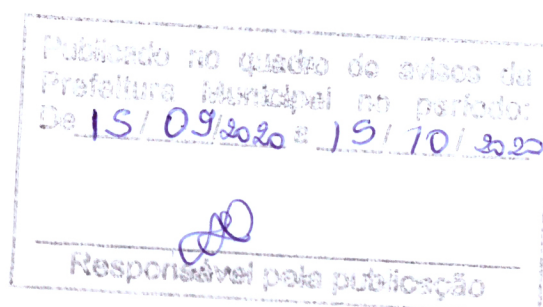 Publicado no quadro de avisos da
Prefeitura Municipal no período:
De 15/ 09/2020 a 15/ 10/ 2020
Responsável pela publicação